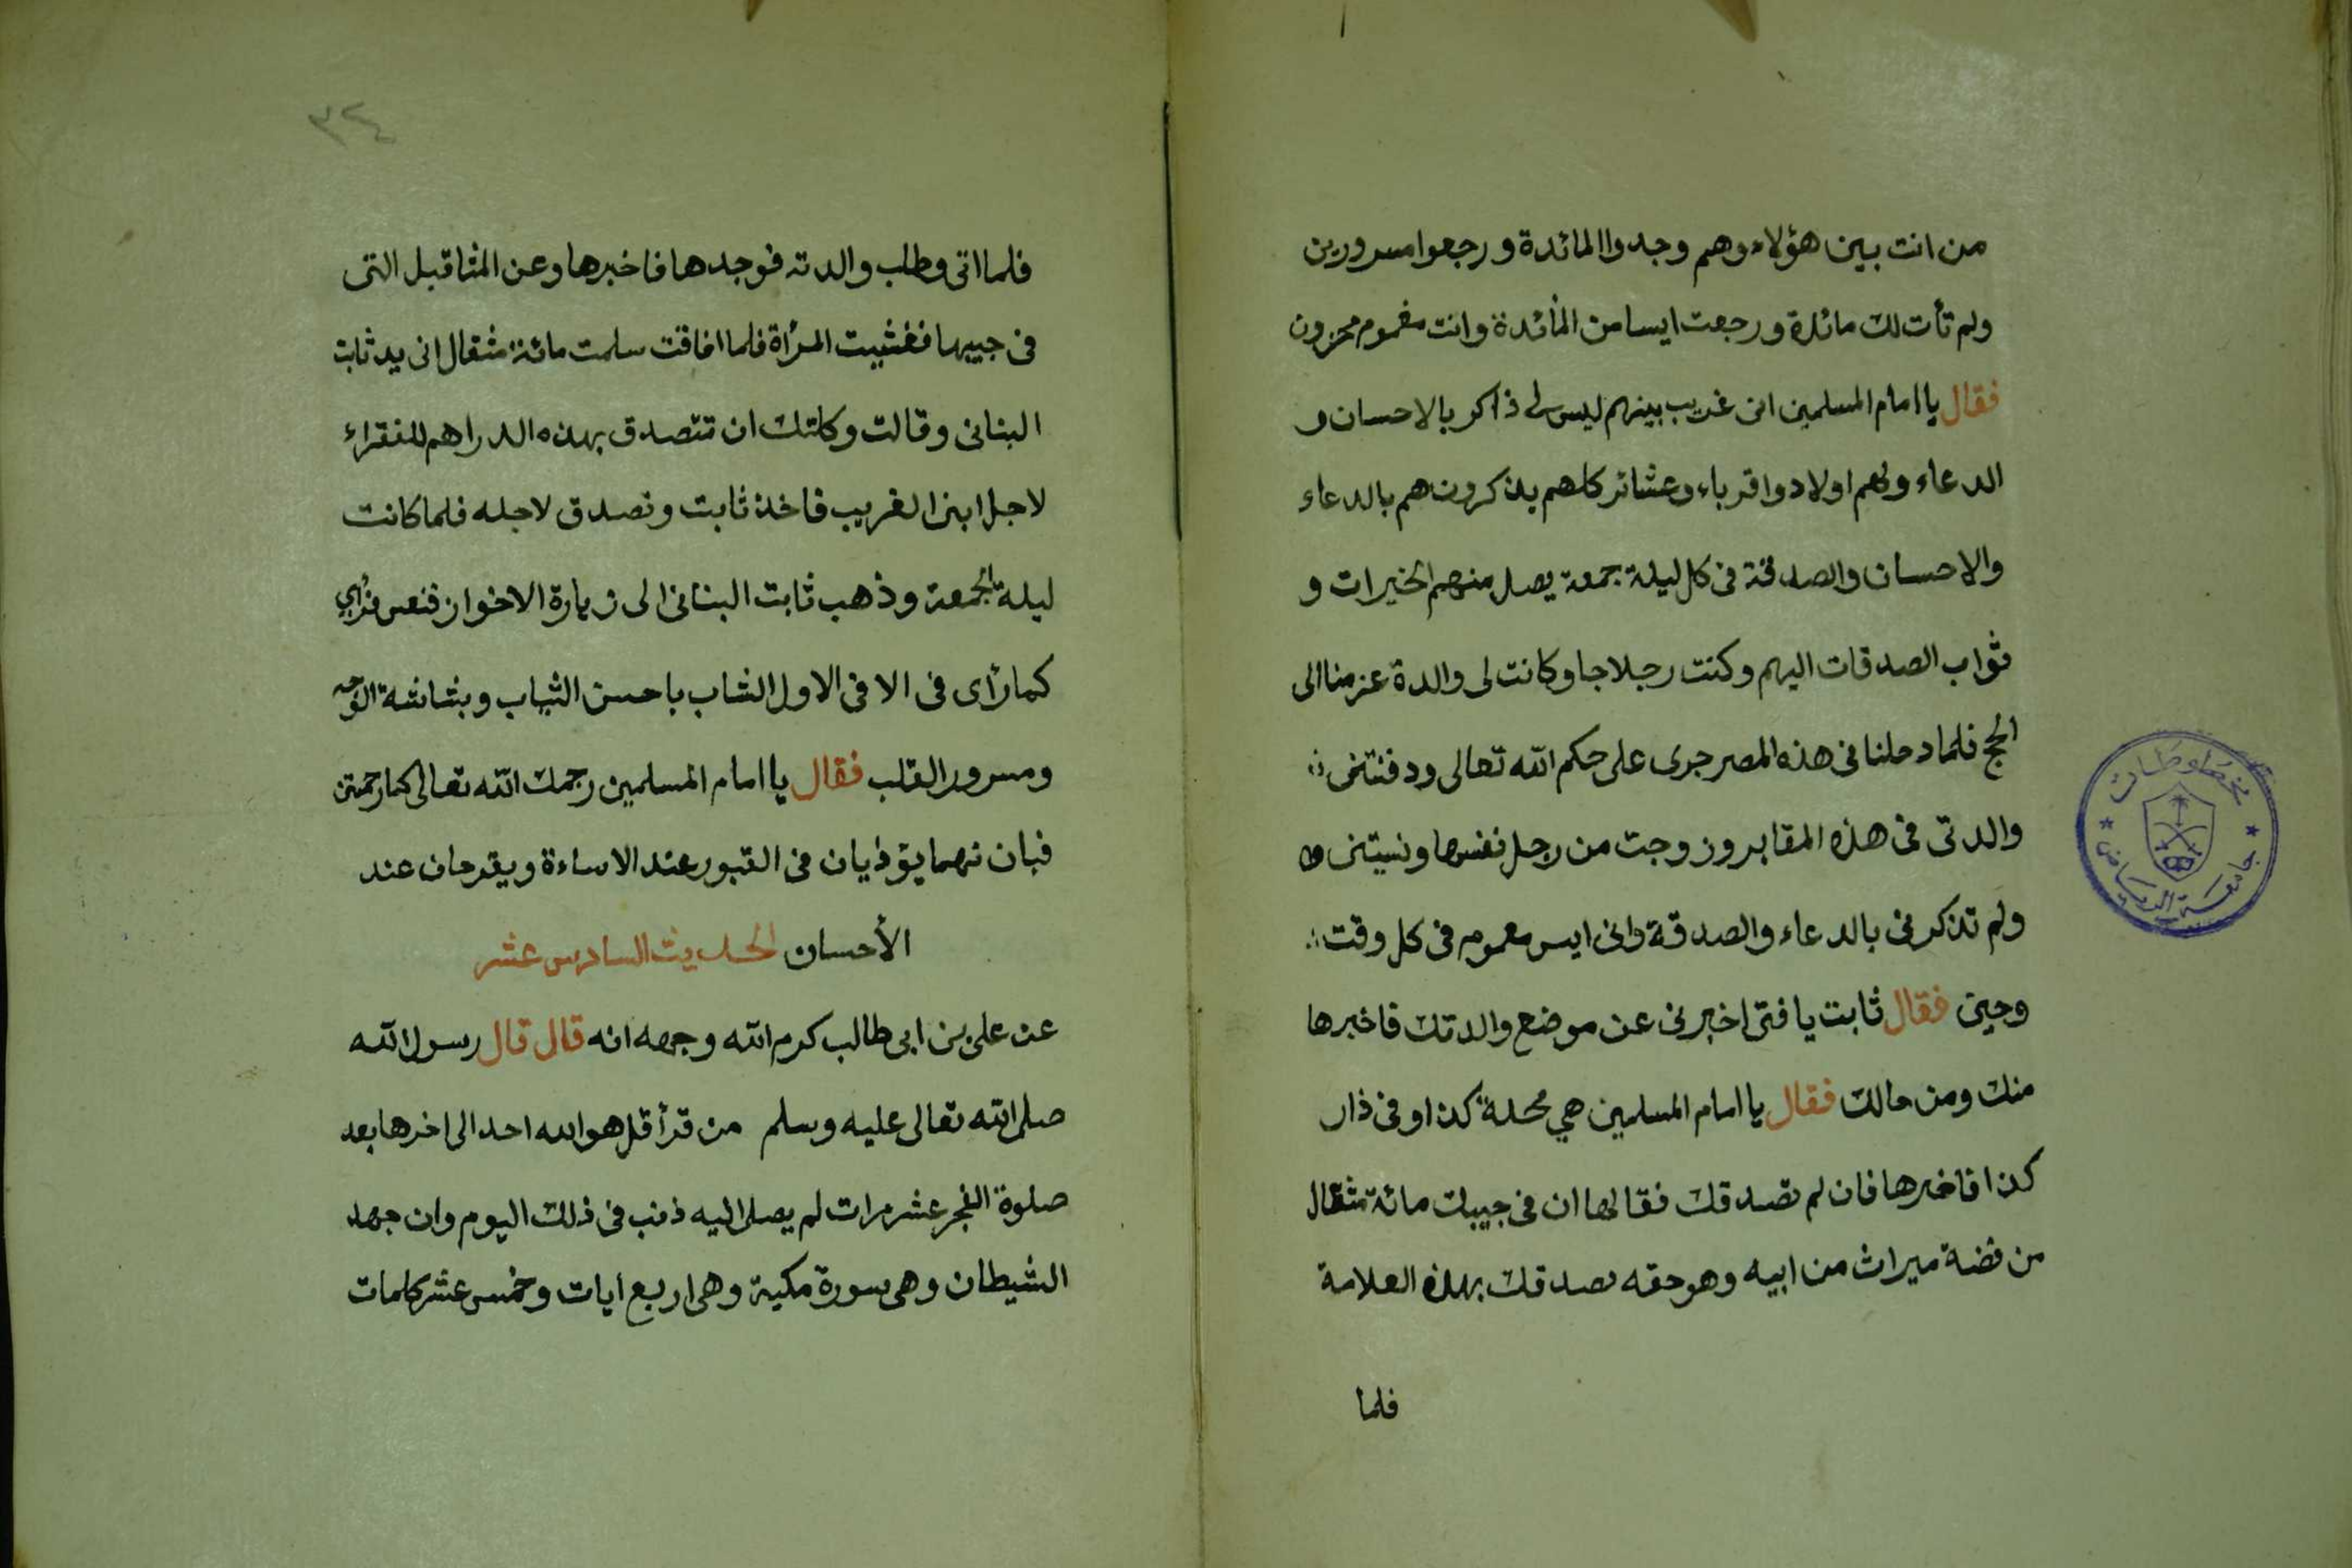 من انت بين هؤلاء وهم وجدوا المائدة ورجعوا مسرورين
ولم تأت لك مائدة ورجعت ايسا من المائدة وانت مغموم محزون
فقال يا امام المسلمين انى غريب بينهم ليس لى ذاكر بالاحسان و
الدعاء ولهم اولاد واقرباء وعشائر كلهم يذكرونهم بالدعاء
والاحسان والصدقة فى كل ليلة جمعة يصل منهم الخيرات و
ثواب الصدقات اليهم وكنت رجلا جا وكانت لى والدة عزمنا الى
الحج فلما دخلنا فى هذه المصر جرى على حكم الله تعالى ودفنتنى
والدتى فى هذه المقابر وزوجت من رجل نفسها ونسيتنى
ولم تذكرنى بالدعاء والصدقة وانى ايس مغموم فى كل وقت
وحين فقال ثابت يا فتى اخبرنى عن موضع والدتك فاخبرها
منك ومن حالك فقال يا امام المسلمين هي محلة كذا وفى ذار
كذا فاخبرها فان لم تصدقك فقالها ان فى جيبك مائة مثقال
من فضة ميراث من ابيه وهو حقه تصدقك بهذه العلامة
فلما
٣٤
فلما اتى وطلب والدته فوجدها فاخبرها وعن المثاقيل التى
فى جيبها فغشيت المرأة فلما افاقت سلمت مائة مثقال انى يد ثابت
البنانى وقالت وكلتك ان تتصدق بهذه الدراهم للفقراء
لاجل ابنى الغريب فاخذ ثابت وتصدق لاجله فلما كانت
ليلة الجمعة وذهب ثابت البنانى الى زيارة الاخوان فنعس فرأي
كما رأى فى الا فى الاول الشاب باحسن الثياب وبشاشة الوجه
ومسرور القلب فقال يا امام المسلمين رحمك الله تعالى كما رحمتن
فبان نهما يؤذيان فى القبور عند الاساءة ويفرحان عند
الأحسان الحديث السادس عشر
عن على بن ابى طالب كرم الله وجهه انه قال قال رسول الله
صلى الله تعالى عليه وسلم من قرأ قل هو الله احد الى اخرها بعد
صلوة الفجر عشر مرات لم يصل اليه ذنب فى ذلك اليوم وان جهد
الشيطان وهى سورة مكية وهى اربع ايات وخمس عشر كلمات
مخطوطات
جامعة الرياض